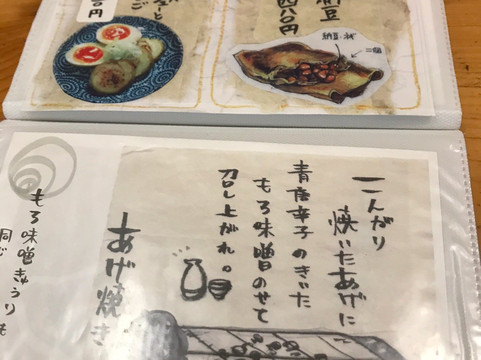 納豆
四八〇円
納豆・ねぎ
円
こんがり
焼いたあげに
青唐辛子のきいた
もろ味噌のせて
召し上がれ。
あげ焼き
もろ味噌きゅうりも
同じ